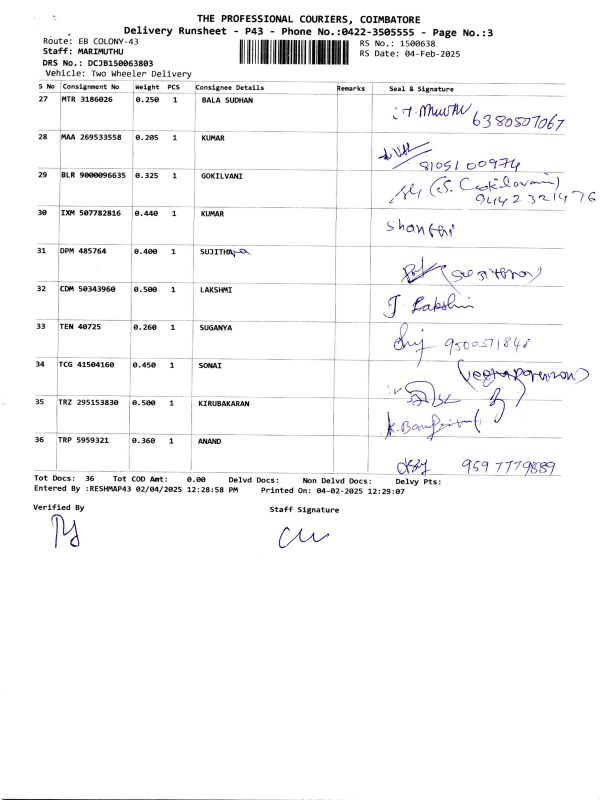 THE PROFESSIONAL COURIERS, COIMBATORE
Delivery Runsheet - P43 - Phone No.:0422-3505555 - Page No.:3
Route: EB COLONY-43 RS No.: 1500638
Staff: MARIMUTHU RS Date: 04-Feb-2025
DRS No.: DCJB150063803
Vehicle: Two Wheeler Delivery
S No Consignment No Weight PCS Consignee Details Remarks Seal & Signature
27 MTR 3186026 0.250 1 BALA SUDHAN 6380507067
28 MAA 269533558 0.205 1 KUMAR
8105100974
29 BLR 9000096635 0.325 1 GOKILVANI
9442321476
30 IXM 507782816 0.440 1 KUMAR Shanthi
31 DPM 485764 0.400 1 SUJITHA
32 CDM 50343960 0.500 1 LAKSHMI J Lakshmi
33 TEN 40725 0.260 1 SUGANYA 9500571848
34 TCG 41504160 0.450 1 SONAI
35 TRZ 295153830 0.500 1 KIRUBAKARAN
36 TRP 5959321 0.360 1 ANAND 9597779889
Tot Docs: 36 Tot COD Amt: 0.00 Delvd Docs: Non Delvd Docs: Delvy Pts:
Entered By :RESHMAP43 02/04/2025 12:28:58 PM Printed On: 04-02-2025 12:29:07
Verified By Staff Signature